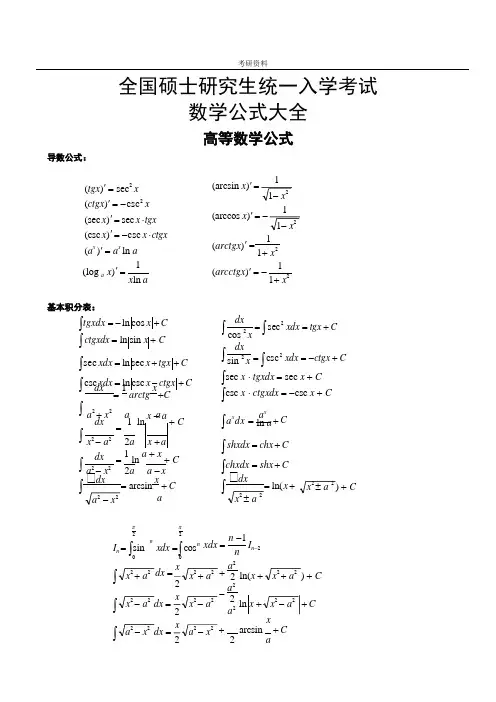 考研资料
全国硕士研究生统一入学考试
数学公式大全
高等数学公式
导数公式：
(tgx)′ = sec²x
(ctgx)′ = −csc²x
(secx)′ = secx·tgx
(cscx)′ = −cscx·ctgx
(aˣ)′ = aˣ ln a
(logₐx)′ = 1/(x ln a)
(arcsin x)′ = 1/(1−x²)
(arccos x)′ = −1/(1−x²)
(arctgx)′ = 1/(1+x²)
(arcctgx)′ = −1/(1+x²)
基本积分表：
∫tgxdx = −ln|cosx| + C
∫ctgxdx = ln|sinx| + C
∫secxdx = ln|secx + tgx| + C
∫cscxdx = ln|cscx − ctgx| + C
∫dx/(a²+x²) = 1/a arctg x/a + C
∫dx/(x²−a²) = 1/2a ln|(x−a)/(x+a)| + C
∫dx/(a²−x²) = 1/2a ln (a+x)/(a−x) + C
∫□dx/(a²−x²) = arcsin x/a + C
∫dx/cos²x = ∫sec²xdx = tgx + C
∫dx/sin²x = ∫csc²xdx = −ctgx + C
∫secx·tgxdx = secx + C
∫cscx·ctgxdx = −cscx + C
∫aˣdx = aˣ/ln a + C
∫shxdx = chx + C
∫chxdx = shx + C
∫□dx/(x²±a²) = ln(x + √(x²±a²)) + C
Iₙ = ∫₀^(π/2) sinⁿxdx = ∫₀^(π/2) cosⁿxdx = (n−1)/n Iₙ₋₂
∫√(x²+a²)dx = x/2 √(x²+a²) + a²/2 ln(x+√(x²+a²)) + C
∫√(x²−a²)dx = x/2 √(x²−a²) − a²/2 ln|x+√(x²−a²)| + C
∫√(a²−x²)dx = x/2 √(a²−x²) + a²/2 arcsin x/a + C